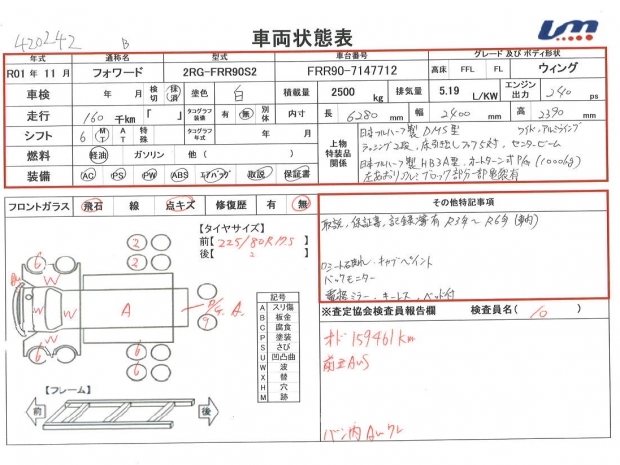 420242 B 車両状態表 um
年式 通称名 型式 車台番号 グレード及びボディ形状
R01 年 11 月 フォワード 2RG-FRR90S2 FRR90-7147712 高床 FFL FL ウィング
車検 年 月 検切 抹消 塗色 白 積載量 2500 kg 排気量 5.19 L/KW エンジン出力 240 ps
走行 160 千km 「 」 タコグラフ装備 有 無 別体 内寸 長 6280 mm 幅 2400 mm 高 2390 mm
シフト 6 MT AT 特殊 タコグラフ年式 年 月 上物特装品関係 日本フルハーフ製 DMS型 ワイド、アルミウイング
ラッシング2段、床引出しフック5対、センタービーム
燃料 軽油 ガソリン 他 ( ) 日本フルハーフ製 HB3A型 P/G (1000kg)
装備 AC PS PW ABS エアバッグ 取説 保証書 左あおりアルミブロック部分一部亀裂有
フロントガラス 飛石 線 点キズ 修復歴 有 無 その他特記事項
取説、保証書、記録簿有 R3年〜R6年(車内)
【タイヤサイズ】
前【225/80R17.5 】
後【 〃 】
バックモニター
電格ミラー、キーレス、ベッド付
6 6 W W W A A. P/G
2 2 2 2
9 9
6 6
記号
A スリ傷
B 板金
C 腐食
P 塗装
S さび
U 凹凸曲
W 波
X 替
H 穴
M 跡
※査定協会検査員報告欄 検査員名( 10 )
オド 159461km
前 AUS
【フレーム】
前 後
バン内AUクレ